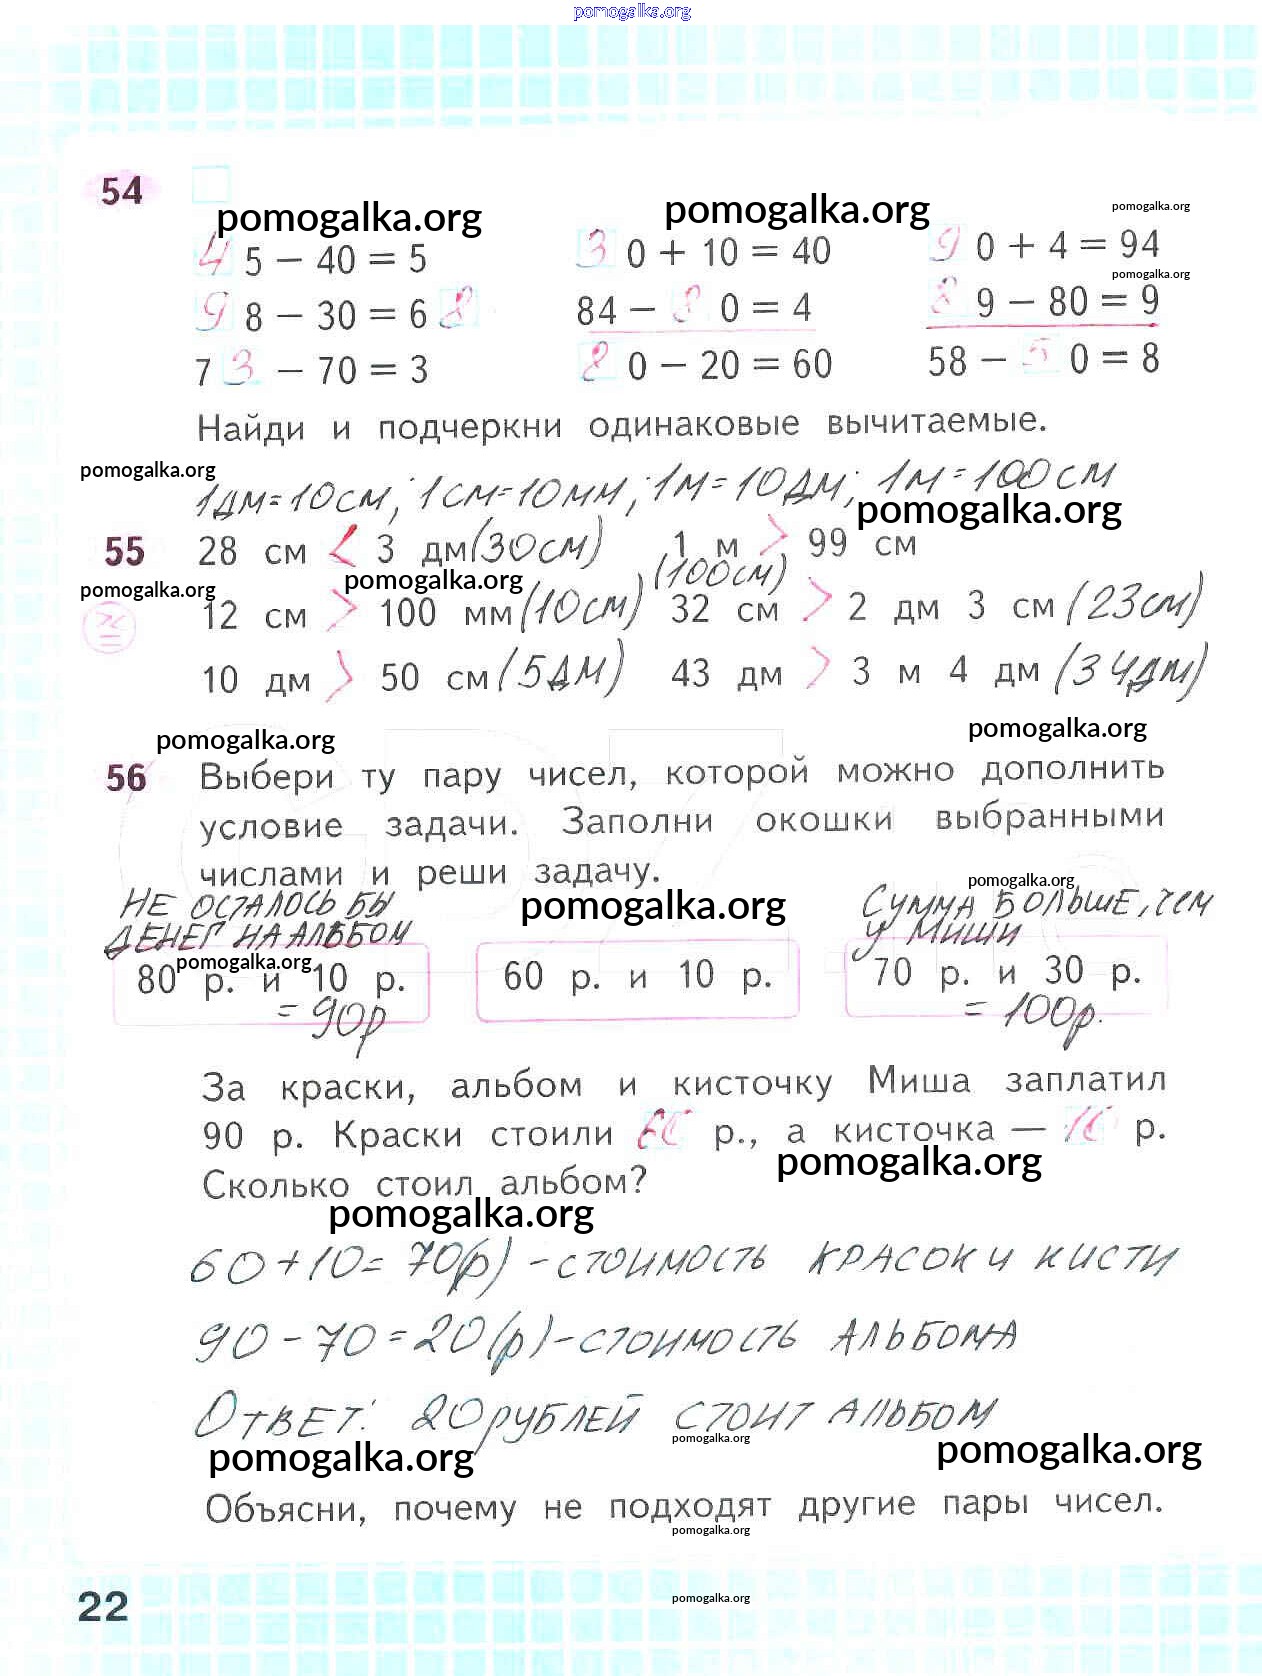 pomogalka.org
54
pomogalka.org pomogalka.org pomogalka.org
45 − 40 = 5 30 + 10 = 40 90 + 4 = 94
pomogalka.org
98 − 30 = 68 84 − 80 = 4 89 − 80 = 9
73 − 70 = 3 80 − 20 = 60 58 − 50 = 8
Найди и подчеркни одинаковые вычитаемые.
pomogalka.org
1дм=10см; 1см=10мм; 1м=10дм; 1м=100см
pomogalka.org
55 28 см < 3 дм (30см) 1 м > 99 см
(100см)
pomogalka.org pomogalka.org
12 см > 100 мм (10см) 32 см > 2 дм 3 см (23см)
10 дм > 50 см (5дм) 43 дм > 3 м 4 дм (34дм)
pomogalka.org pomogalka.org
56 Выбери ту пару чисел, которой можно дополнить
условие задачи. Заполни окошки выбранными
числами и реши задачу.
pomogalka.org pomogalka.org
Не осталось бы Сумма больше, чем
денег на альбом у Миши
pomogalka.org
80 р. и 10 р. 60 р. и 10 р. 70 р. и 30 р.
= 90р = 100р.
За краски, альбом и кисточку Миша заплатил
90 р. Краски стоили 60 р., а кисточка — 10 р.
pomogalka.org
Сколько стоил альбом?
pomogalka.org
60+10=70(р) - стоимость красок и кисти
90-70=20(р) - стоимость альбома
Ответ: 20 рублей стоит альбом
pomogalka.org pomogalka.org pomogalka.org
Объясни, почему не подходят другие пары чисел.
pomogalka.org
22
pomogalka.org